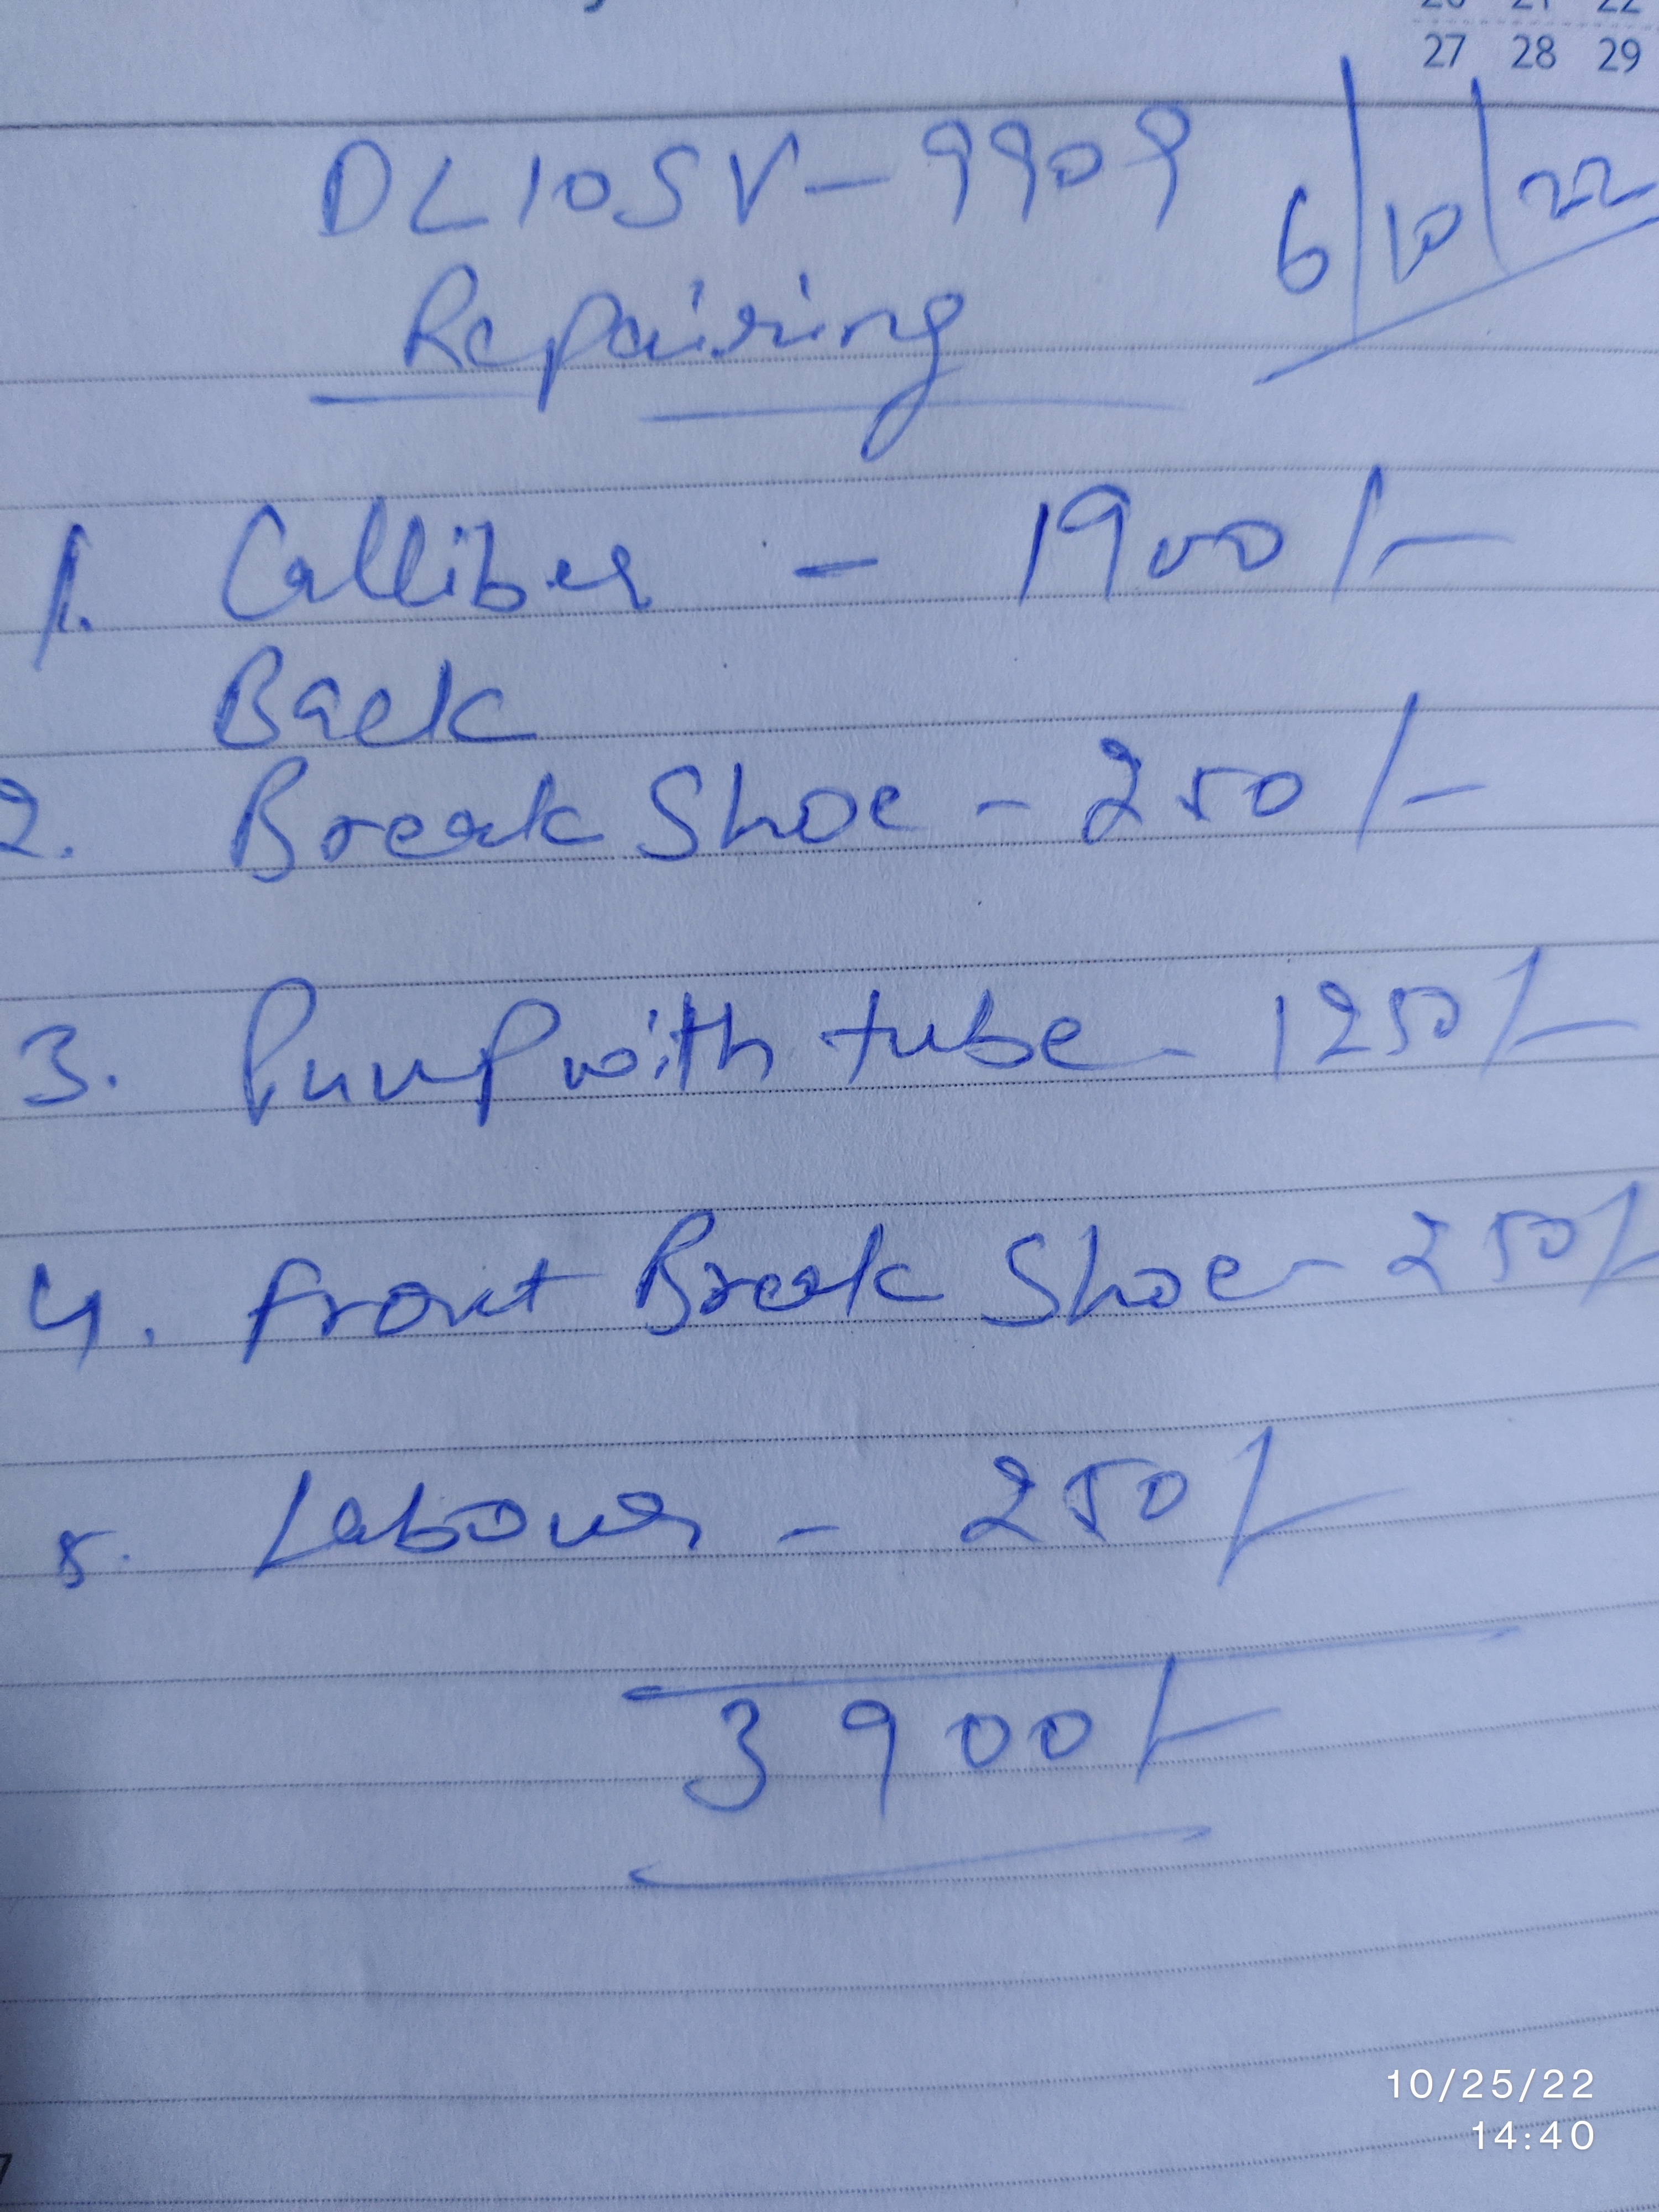 27 28 29
DL10SV-9909
6/10/22
Repairing
1. Calliber - 1900/-
Back
2. Break Shoe - 250/-
3. Pump with tube - 1250/-
4. Front Break Shoe - 250/-
5. Labour - 250/-
3900/-
10/25/22
14:40